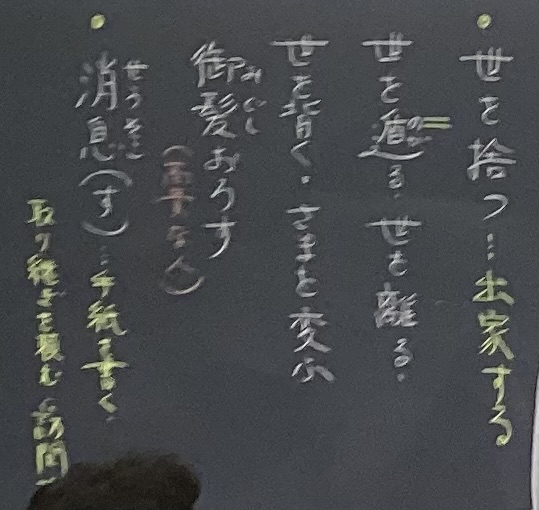 ・世を捨つ…出家する
世を遁る・世を離る・
世を背く・さまを変ふ
御髪おろす
みぐし
(高貴な人)
・消息(す)…手紙を書く・
せうそこ
取り継ぎを頼む・訪問